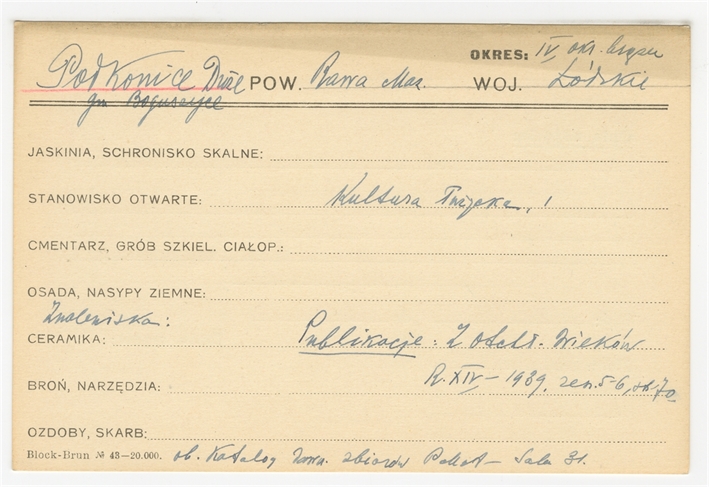 OKRES: IV okr. brązu
Podkonice Duże POW. Rawa Maz. WOJ. Łódzkie
gm Boguszyce
JASKINIA, SCHRONISKO SKALNE:
STANOWISKO OTWARTE: Kultura łużycka
CMENTARZ, GRÓB SZKIEL. CIAŁOP.:
OSADA, NASYPY ZIEMNE:
Znalewiska:
CERAMIKA: Publikacje: Z otchł. wieków
BROŃ, NARZĘDZIA: R. XIV – 1939, zesz. 5-6, str. 70
OZDOBY, SKARB:
Block-Brun № 43—20.000. ob. Katalog zbiorów Sala 31.